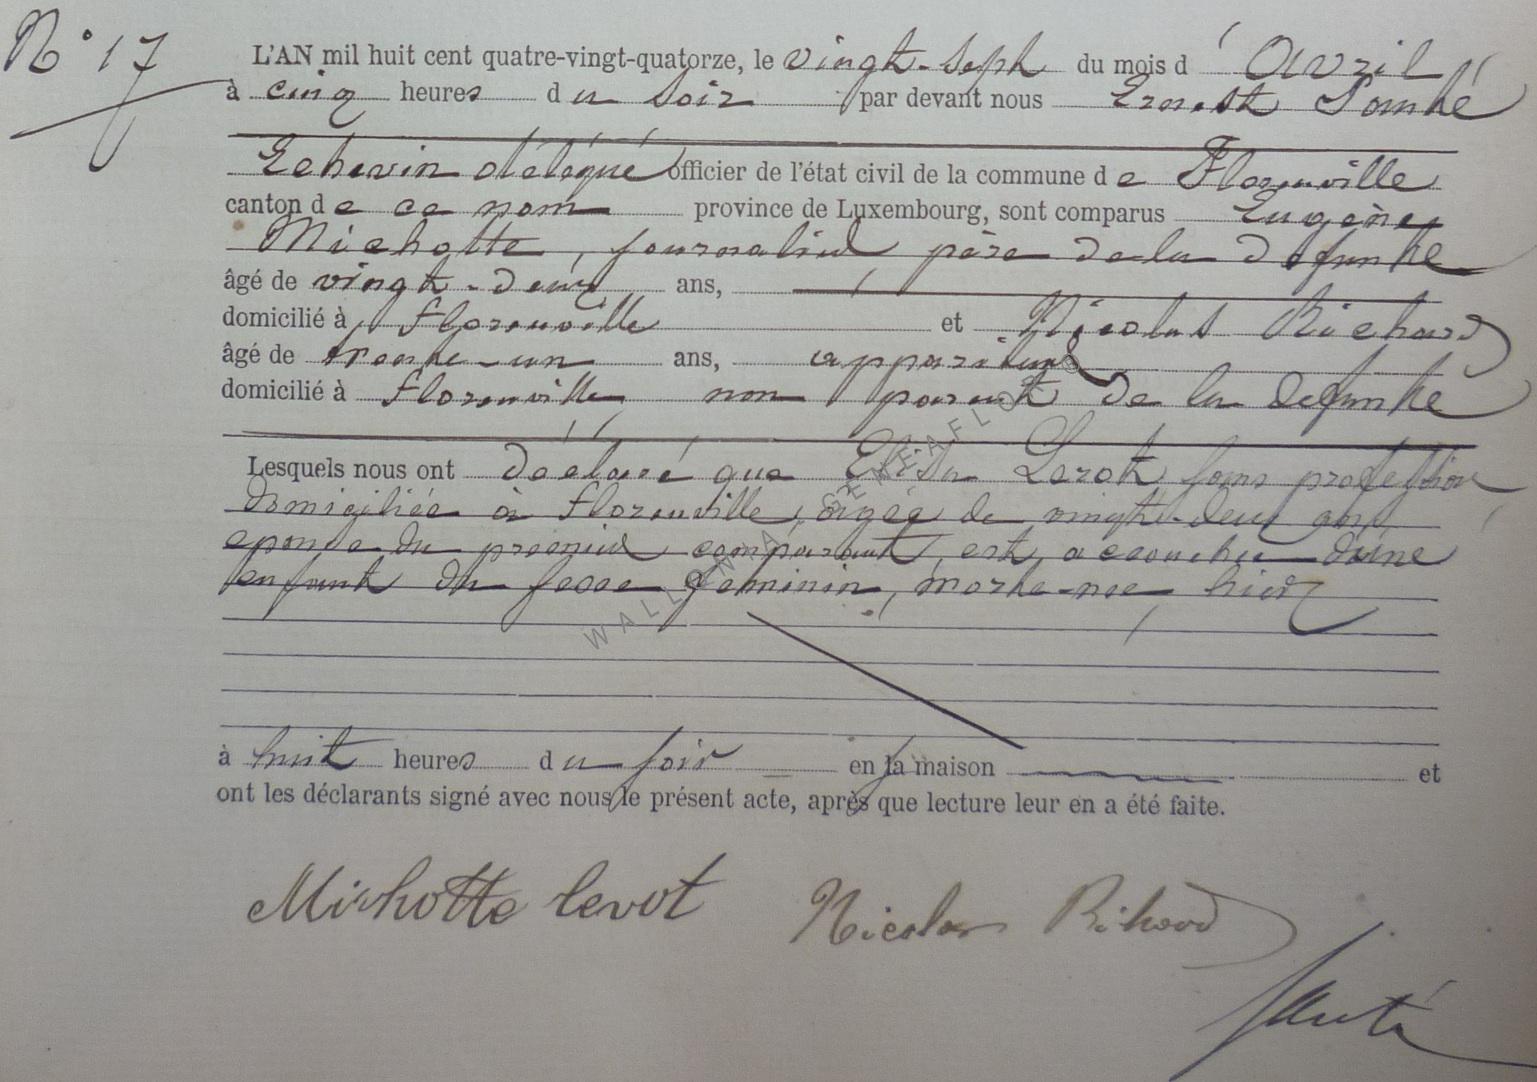 N° 17
L'AN mil huit cent quatre-vingt-quatorze, le vingt-sept du mois d'Avril
à cinq heures du soir par devant nous Ernest
Echevin délégué officier de l'état civil de la commune de Florenville
canton de ce nom province de Luxembourg, sont comparus Eugène
Michotte, journalier père de la défunte
âgé de vingt-deux ans,
domicilié à Florenville et Nicolas Richard
âgé de trente-un ans, appariteur
domicilié à Florenville non parent de la défunte
Lesquels nous ont déclaré que Elisa sans profession
domiciliée à Florenville, âgée de vingt-deux ans
epouse du premier comparant, est accouchée d'une
enfant du sexe féminin, morte-née hier
à huit heures du soir en sa maison et
ont les déclarants signé avec nous le présent acte, après que lecture leur en a été faite.
WALLONIA GENEAFLOR
Michotte
Nicolas Richard